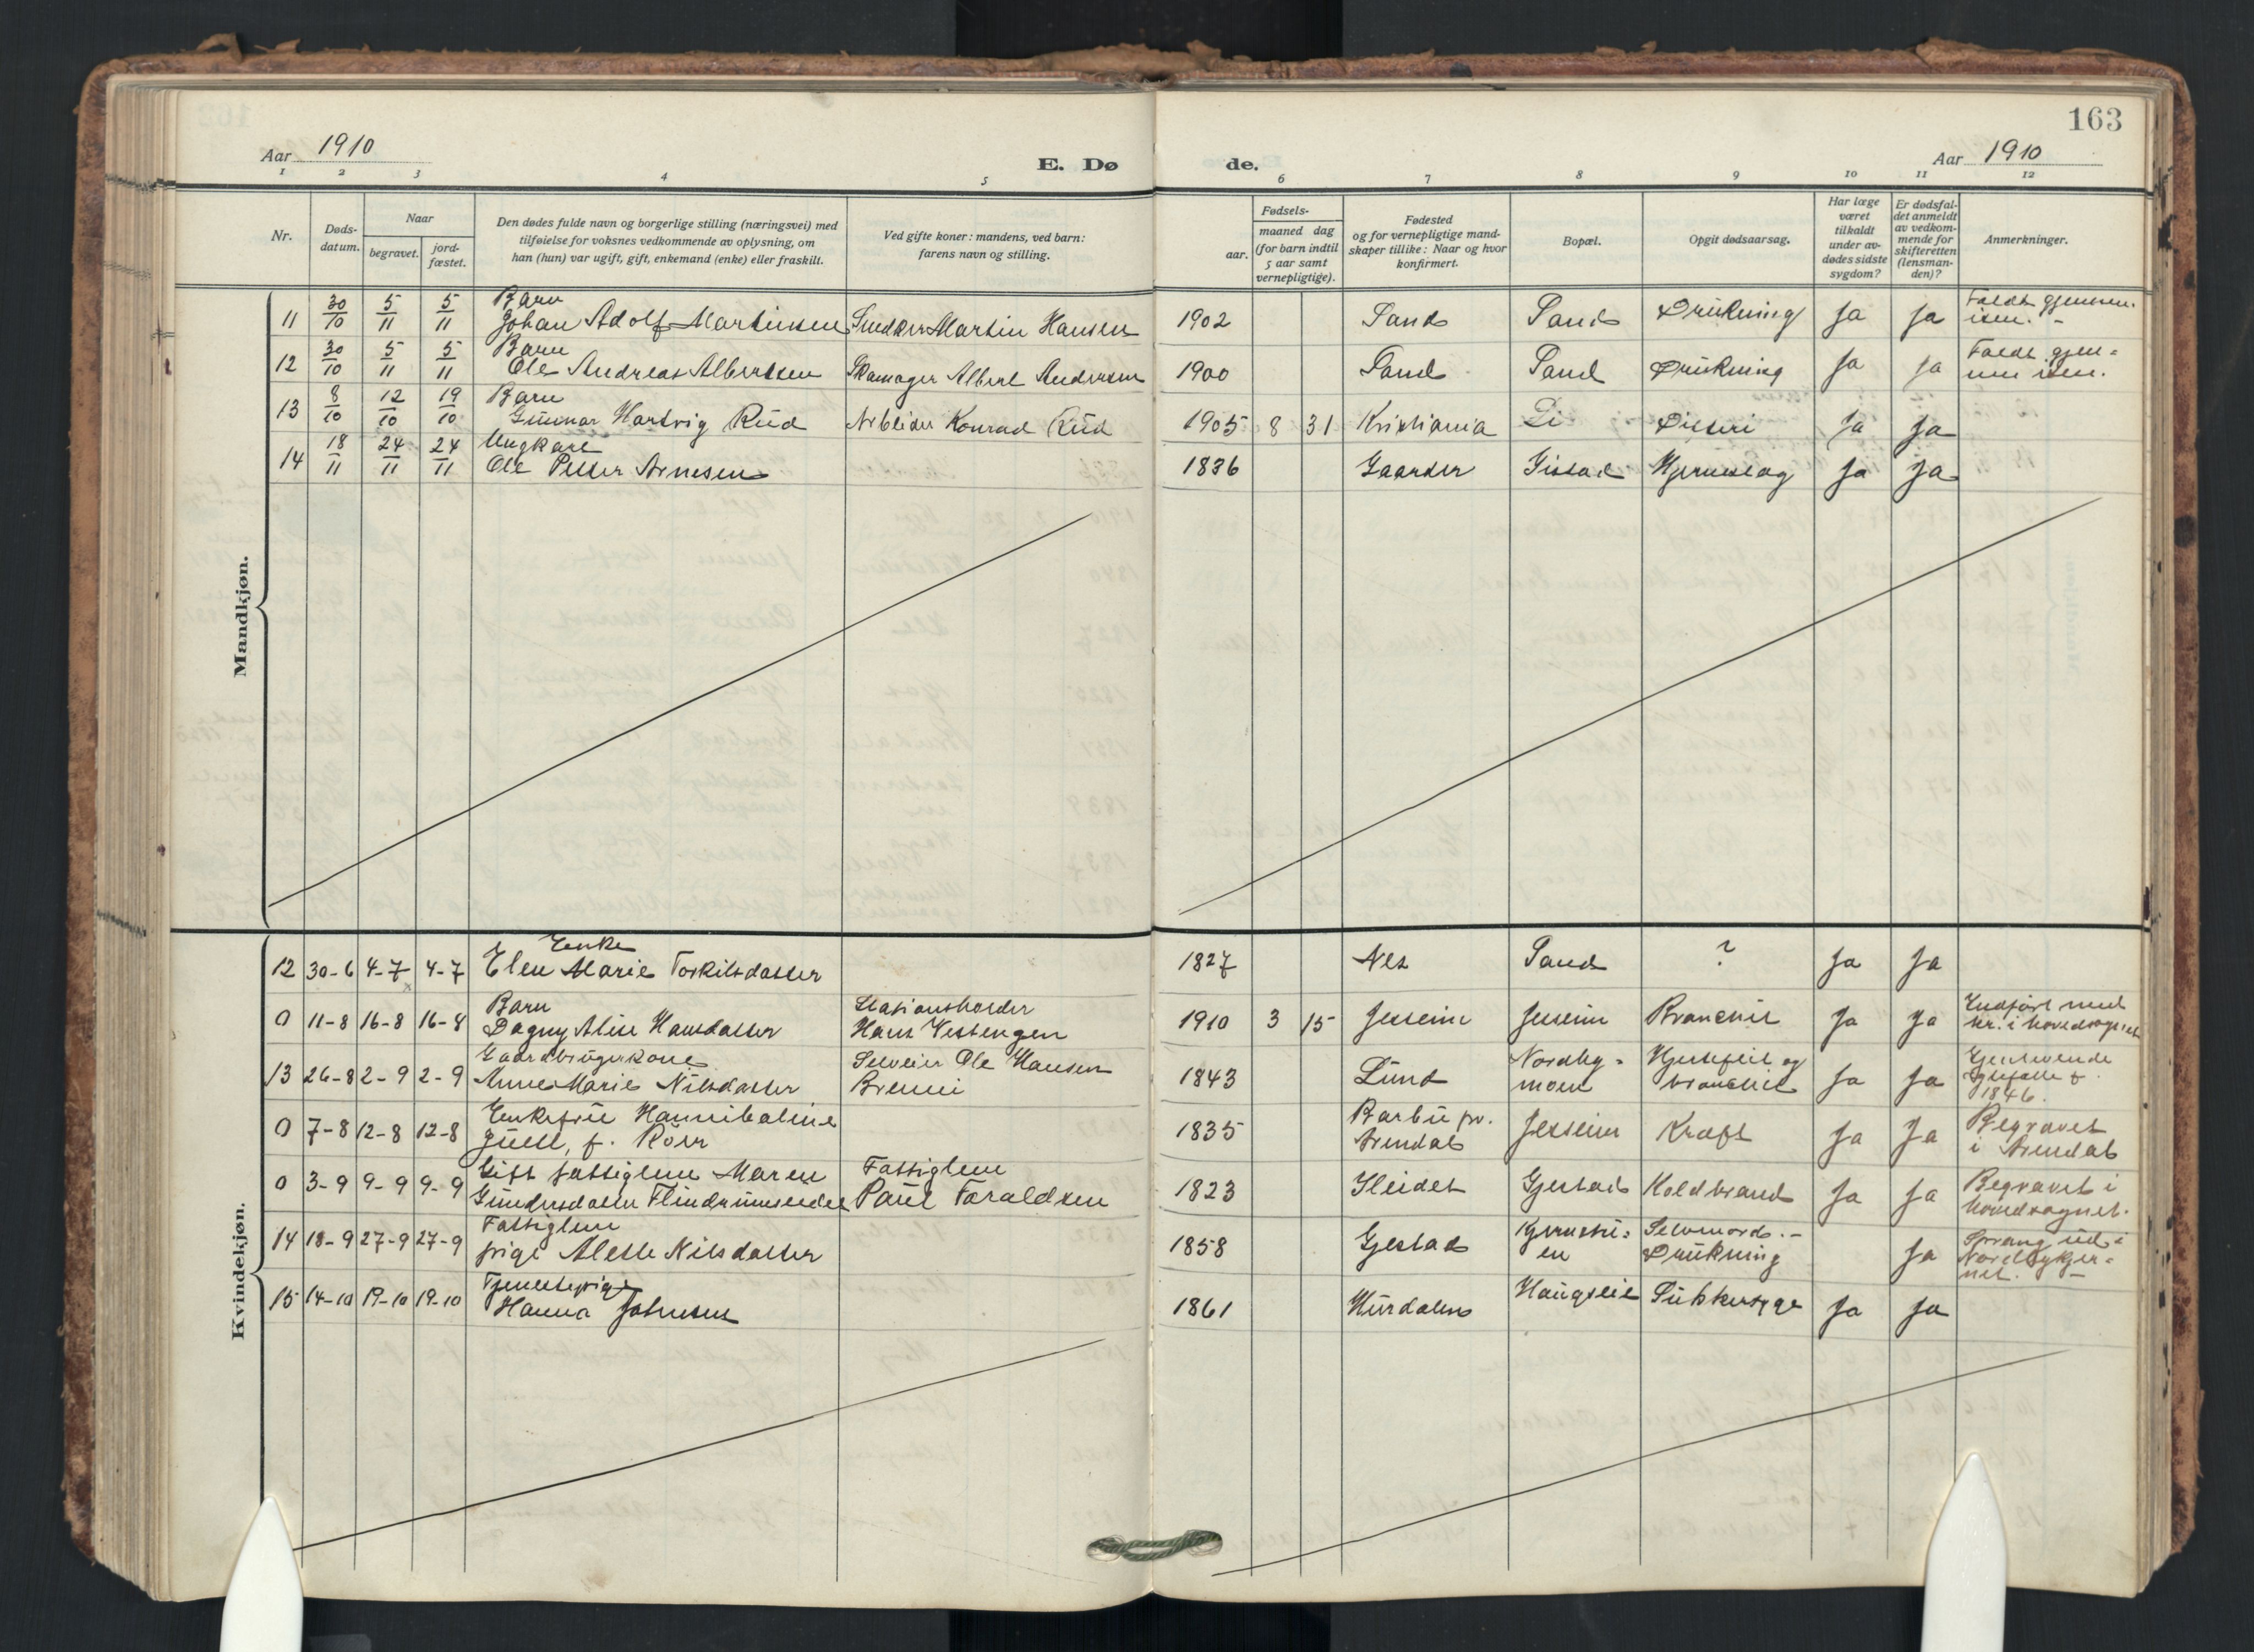 163
Aar 1910
E. Dø
de.
Aar 1910
1 2 3 4 5 6 7 8 9 10 11 12
Nr.
Døds-
datum.
Naar
begravet.
jord-
fæstet.
Den dødes fulde navn og borgerlige stilling (næringsvei) med
tilføielse for voksnes vedkommende av oplysning, om
han (hun) var ugift, gift, enkemand (enke) eller fraskilt.
Ved gifte koner: mandens, ved barn:
farens navn og stilling.
Fødsels-
aar.
maaned dag
(for barn indtil
5 aar samt
vernepligtige).
Fødested
og for vernepligtige mand-
skaper tillike: Naar og hvor
konfirmert.
Bopæl.
Opgit dødsaarsag.
Har læge
været
tilkaldt
under av-
dødes sidste
sygdom?
Er dødsfal-
det anmeldt
av vedkom-
mende for
skifteretten
(lensman-
den)?
Anmerkninger.
Mandkjøn.
11 30/10 5/11 5/11 Barn
Johan Adolf Martinsen Snedker Martin Hansen 1902 Sand Sand Drukning Ja Ja Faldt gjennem
isen. -
12 30/10 5/11 5/11 Barn
Ole Andreas Albertsen Skomager Albert Andersen 1900 Sand Sand Drukning Ja Ja Faldt gjen=
nem isen.
13 8/10 12/10 19/10 Barn
Gunnar Hartvig Rud Arbeider Konrad Rud 1905 8 31 Kristiania Li Difteri Ja Ja
14 18/11 24/11 24/11 Ungkarl
Ole Petter Arnesen 1836 Gaarder Gistad Hjerneslag Ja Ja
Kvindekjøn.
12 30-6 4-7 4-7 Enke
Elen Marie Torkilsdatter 1827 Nes Sand ? Ja Ja
0 11-8 16-8 16-8 Barn
Dagny Alise Hansdatter Stasionsholder
Hans Vestengen 1910 3 15 Jesseim Jesseim Bronchit Ja Ja Indført med
nr. i hovedsognet
13 26-8 2-9 2-9 Gaardbrugerkone
Anne Marie Nilsdatter Selveier Ole Hansen
Brenni 1843 Lund Nordby=
moen Hjertefeil og
bronchit Ja Ja Gjenlevende
egtefælle f.
1846.
0 7-8 12-8 12-8 Enkefrue Hannibaline
Juell, f. Röer 1835 Barbu pr.
Arendal Jesseim Kræft Ja Ja Begravet
i Arendal
0 3-9 9-9 9-9 Gift fattiglem Maren
Gundersdatter Fattiglem
Paul Taraldsen 1823 Gjerstad Koldbrand Ja Ja Begravet i
hovedsognet.
14 18-9 27-9 27-9 Fattiglem
pige Alette Nilsdatter 1858 Gjestad Selvmord. -
Drukning Ja Sprang ud i
Nordbykjer=
net. -
15 14-10 19-10 19-10 Tjenestepige
Hanna Johnsen 1861 Hurdalen Haugseie Sukkersyge Ja Ja